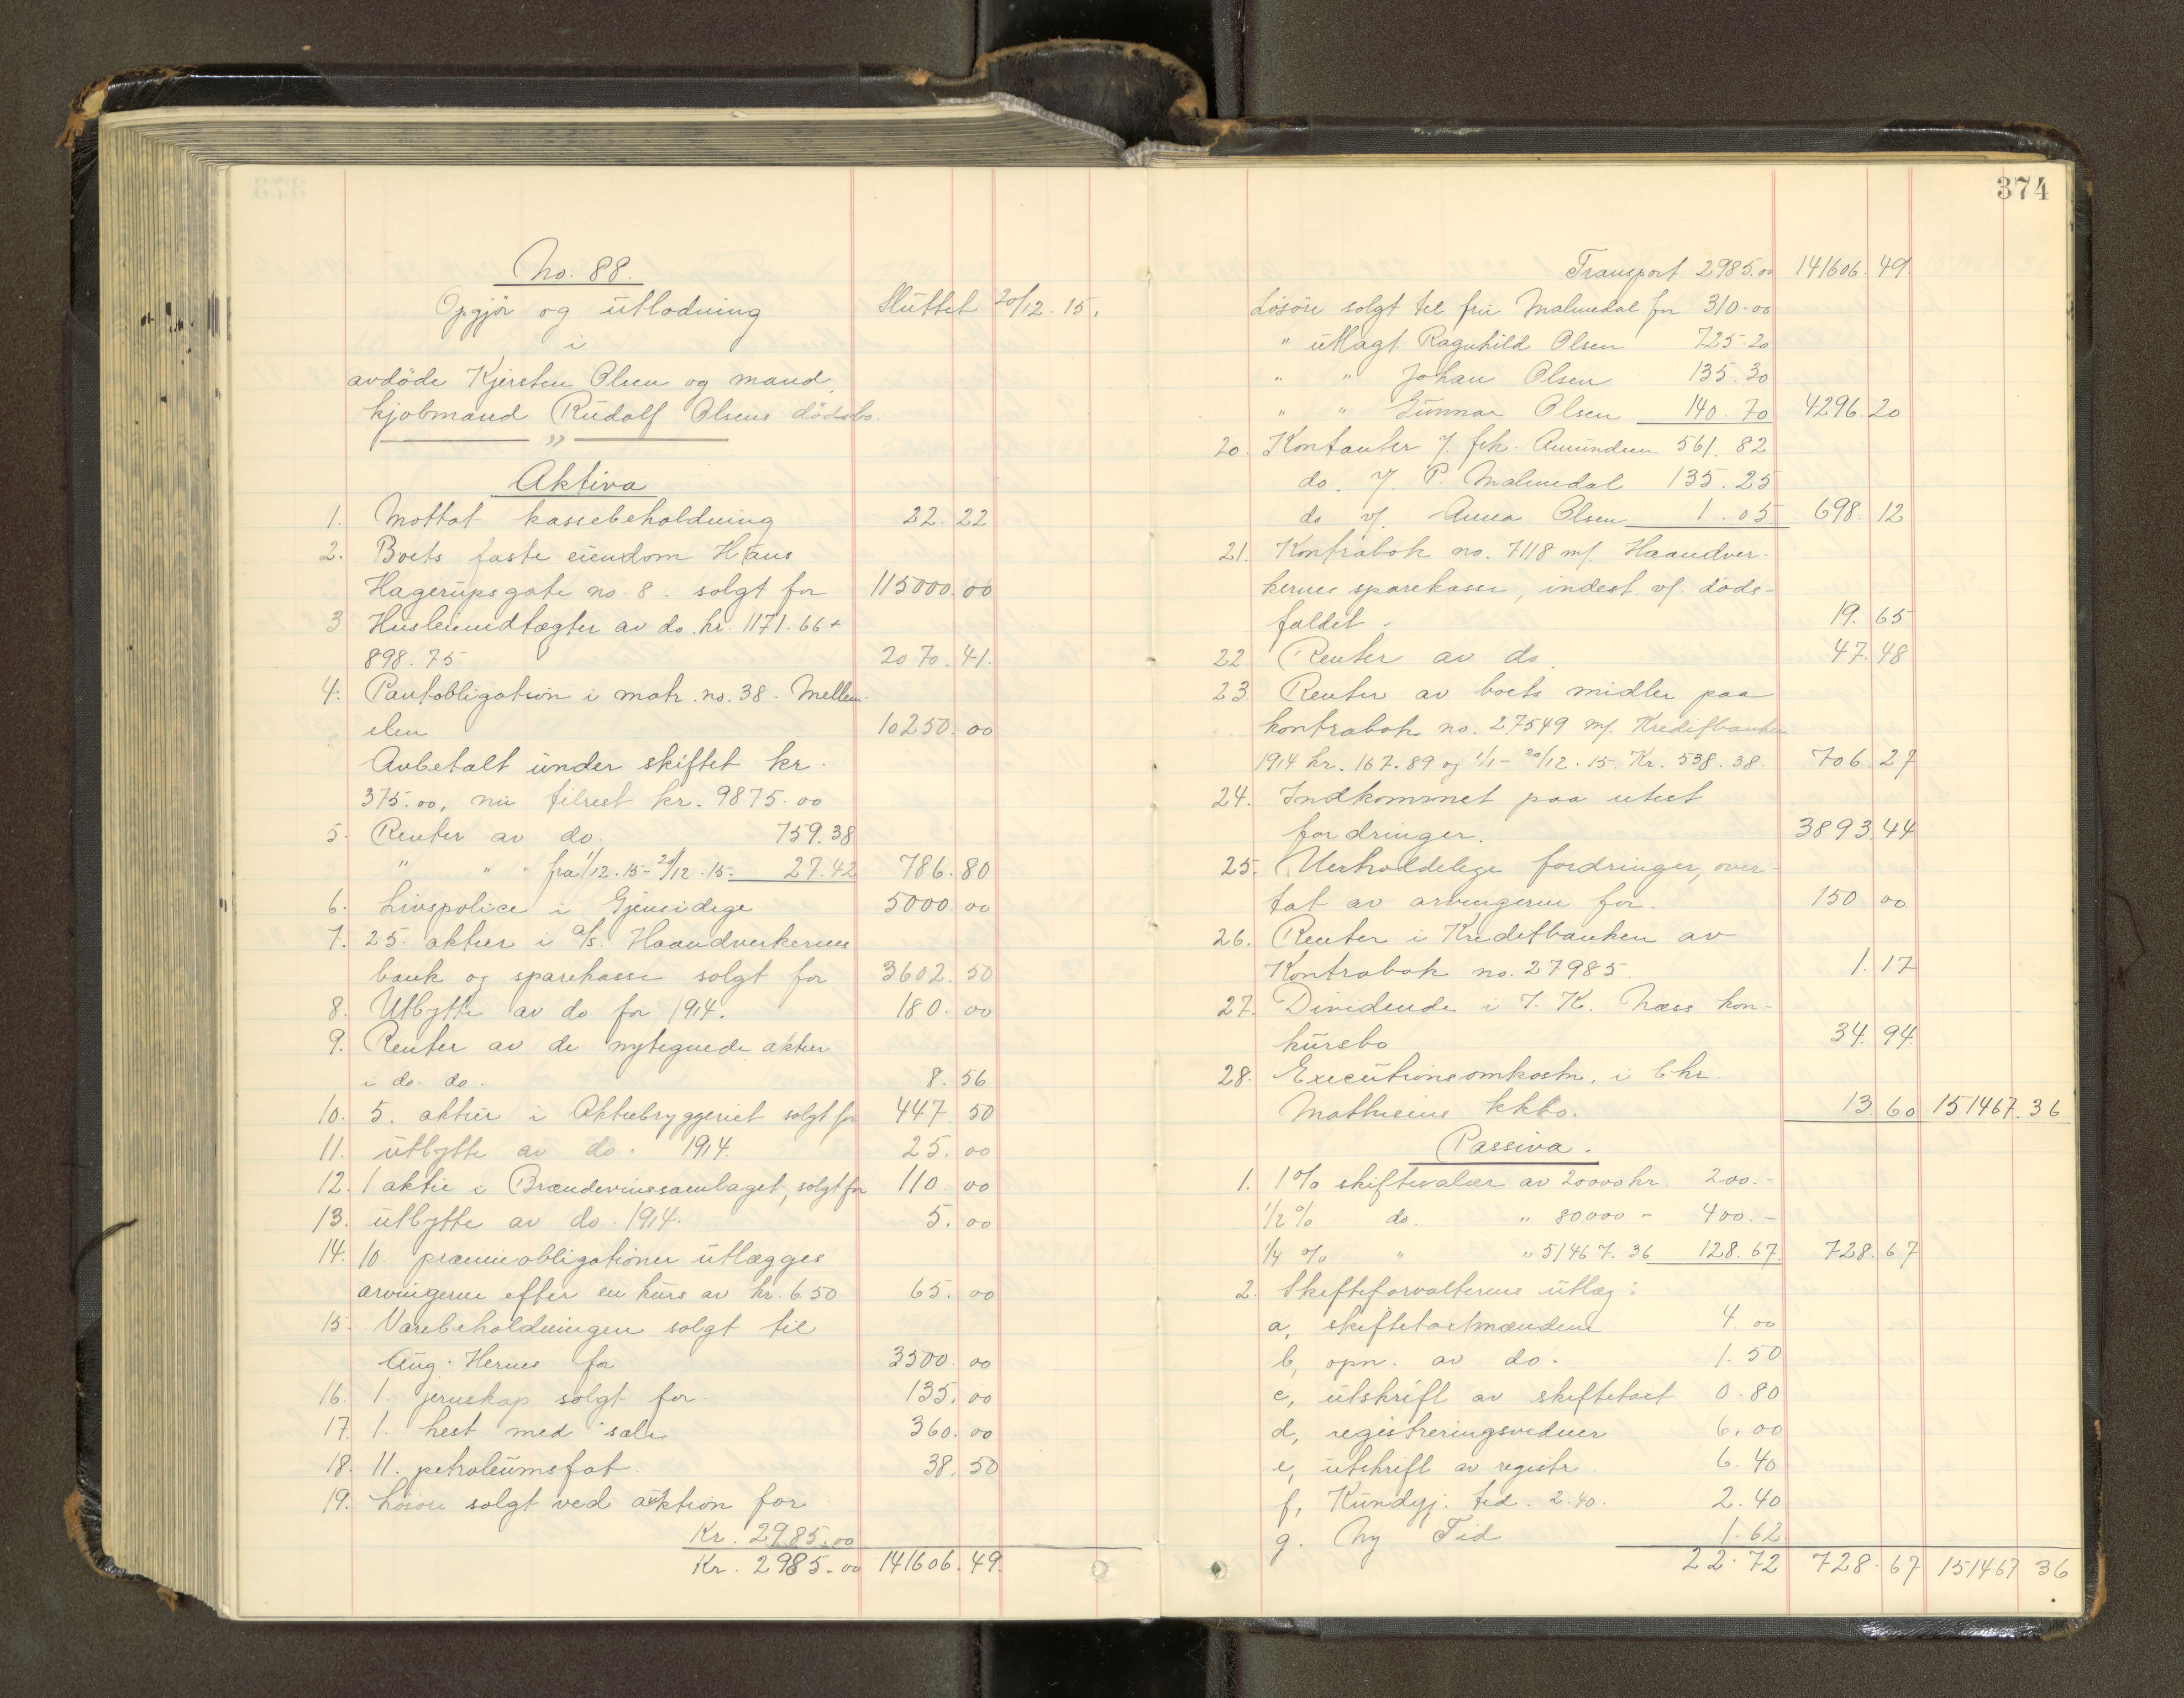 No. 88.
Opgjör og utlodning
Sluttet 20/12.15.
i
avdöde Kjersten Olsen og mand,
kjøbmand Rudolf Olsens dödsbo.
"
Aktiva
1. Mottat kassebeholdning 22.22
2. Boets faste eiendom Hans
Hagerupsgate no. 8. solgt for 115000.00
3 Husleieindtægter av do. kr. 1171.66 +
898.75 2070.41.
4. Pantobligation i matr. no. 38. Mellem-
elen 10250.00
Avbetalt under skiftet kr.
375.00, nu tilrest kr. 9875.00
5. Renter av do. 759.38
" " " fra 1/12.15-20/12.15. 27.42 786.80
6. Livspolice i Gjensidige 5000.00
7. 25 aktier i a/s. Haandverkernes
bank og sparekasse solgt for 3602.50
8. Utbytte av do for 1914. 180.00
9. Renter av de nytegnede aktier
i do. do. 8.56
10. 5. aktier i Aktiebryggeriet solgt for 447.50
11. utbytte av do. 1914. 25.00
12. 1 aktie i Brændevinssamlaget, solgt for 110.00
13. utbytte av do. 1914. 5.00
14. 10. præmieobligationer utlægges
arvingerne efter en kurs av kr. 6.50 65.00
15 Varebeholdningen solgt til
Aug. Hernes for 3500.00
16. 1. jernskap solgt for 135.00
17. 1. hest med sæle 360.00
18. 11. petroleumsfat. 38.50
19. Lösöre solgt ved auktion for
Kr. 2985.00
Kr. 2985.00 141606.49.
374
Transport 2985.00 141606.49
Lösöre solgt til fru Malmedal for 310.00
" utlagt Ragnhild Olsen 725.20
" " Johan Olsen 135.30
" " Gunnar Olsen 140.70 4296.20
20. Kontanter v/. frk. Amundsen 561.82
do. v/. P. Malmedal 135.25
do v/. Anna Olsen 1.05 698.12
21. Kontrabok no. 7118 m/. Haandver-
kernes sparekasse, indest. v/. döds-
faldet. 19.65
22 Renter av do. 47.48
23. Renter av boets midler paa
kontrabok no. 27549 m/. Kreditbanken
1914 kr. 167.89 og 1/1-20/12.15. Kr. 538.38. 706.27
24. Indkommet paa utest
fordringer. 3893.44
25. Uerholdelige fordringer, over-
tat av arvingerne for. 150.00
26. Renter i Kreditbanken av
Kontrabok no. 27985. 1.17
27. Dividende i J. K. Næss kon-
kursbo 34.94
28. Executionsomkostn. i Chr.
Mathisens kkbo. 13.60 151467.36
Passiva.
1. 1% skiftesalær av 20000 kr. 200.-
1/2% do. " 80000 - 400.-
1/4 % " " 51467.36 128.67. 728.67
2. Skifteforvalterens utlæg:
a, skiftetaxtmændene 4.00
b, opn. av do. 1.50
c, utskrift av skiftetaxt 0.80
d, registreringsvidner 6.00
e, utskrift av registr. 6.40
f, Kundgj. tid. 2.40. 2.40
g. Ny Tid 1.62
22.72 728.67 151467 36